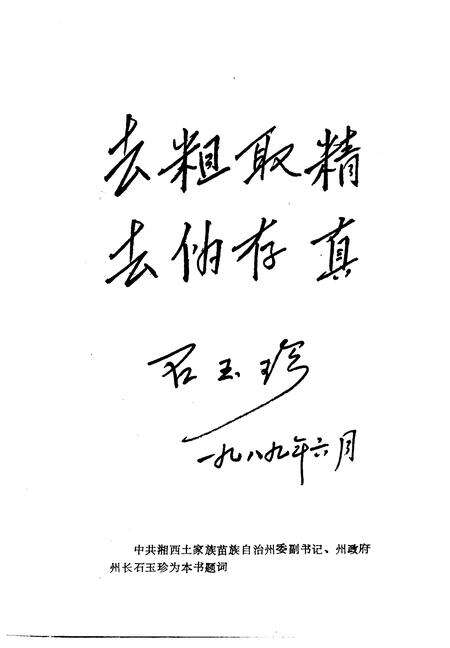 去粗取精
去伪存真
石玉珍
一九八九年六月
中共湘西土家族苗族自治州委副书记、州政府
州长石玉珍为本书题词